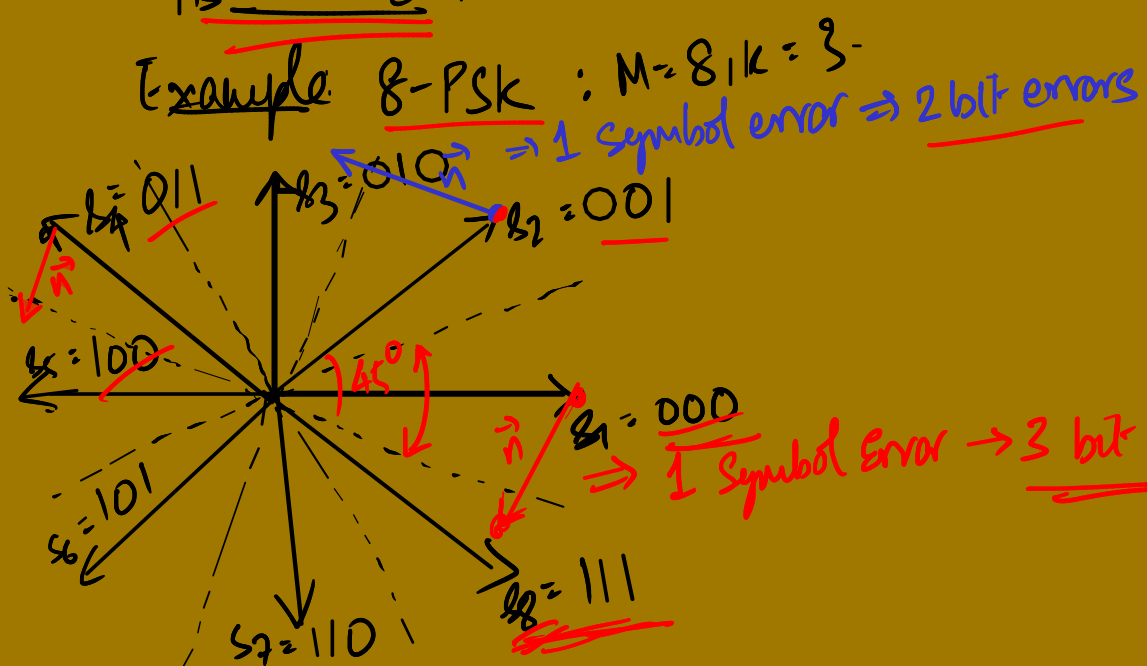 Example 8-PSK : M=8, K=3
⇒ 1 symbol error ⇒ 2 bit errors
n
S4=011
S3=010
S2=001
n
S5=100
45°
S1=000
n
⇒ 1 Symbol Error → 3 bit
S6=101
S8=111
S7=110